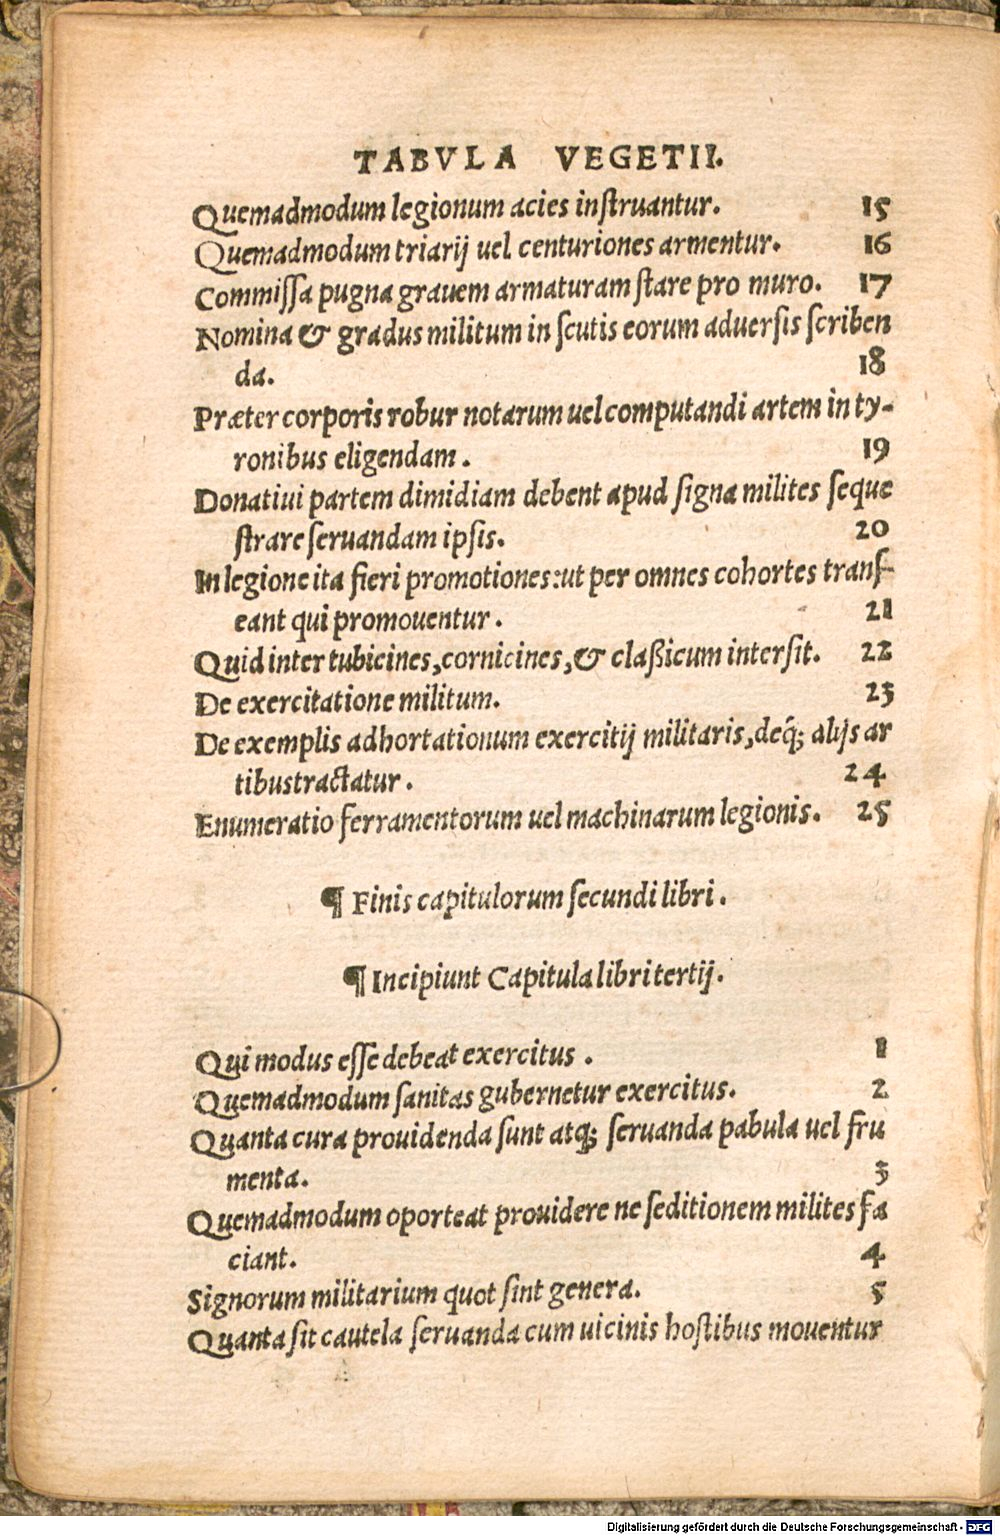 TABVLA VEGETII.
Quemadmodum legionum acies instruantur. 15
Quemadmodum triarij uel centuriones armentur. 16
Commiſſa pugna grauem armaturam ſtare pro muro. 17
Nomina & gradus militum in ſcutis eorum aduerſis ſcriben
da. 18
Præter corporis robur notarum uel computandi artem in ty-
ronibus eligendam. 19
Donatiui partem dimidiam debent apud ſigna milites ſeque
ſtrare ſeruandam ipſis. 20
In legione ita fieri promotiones: ut per omnes cohortes tranſ-
eant qui promouentur. 21
Quid inter tubicines, cornicines, & claßicum interſit. 22
De exercitatione militum. 23
De exemplis adhortationum exercitij militaris, deq́; alijs ar
tibus tractatur. 24
Enumeratio ferramentorum uel machinarum legionis. 25
¶ Finis capitulorum ſecundi libri.
¶ Incipiunt Capitula libri tertij.
Qui modus eſſe debeat exercitus. 1
Quemadmodum ſanitas gubernetur exercitus. 2
Quanta cura prouidenda ſunt atq; ſeruanda pabula uel fru
menta. 3
Quemadmodum oporteat prouidere ne ſeditionem milites fa
ciant. 4
Signorum militarium quot ſint genera. 5
Quanta ſit cautela ſeruanda cum uicinis hoſtibus mouentur
Digitalisierung gefördert durch die Deutsche Forschungsgemeinschaft - DFG